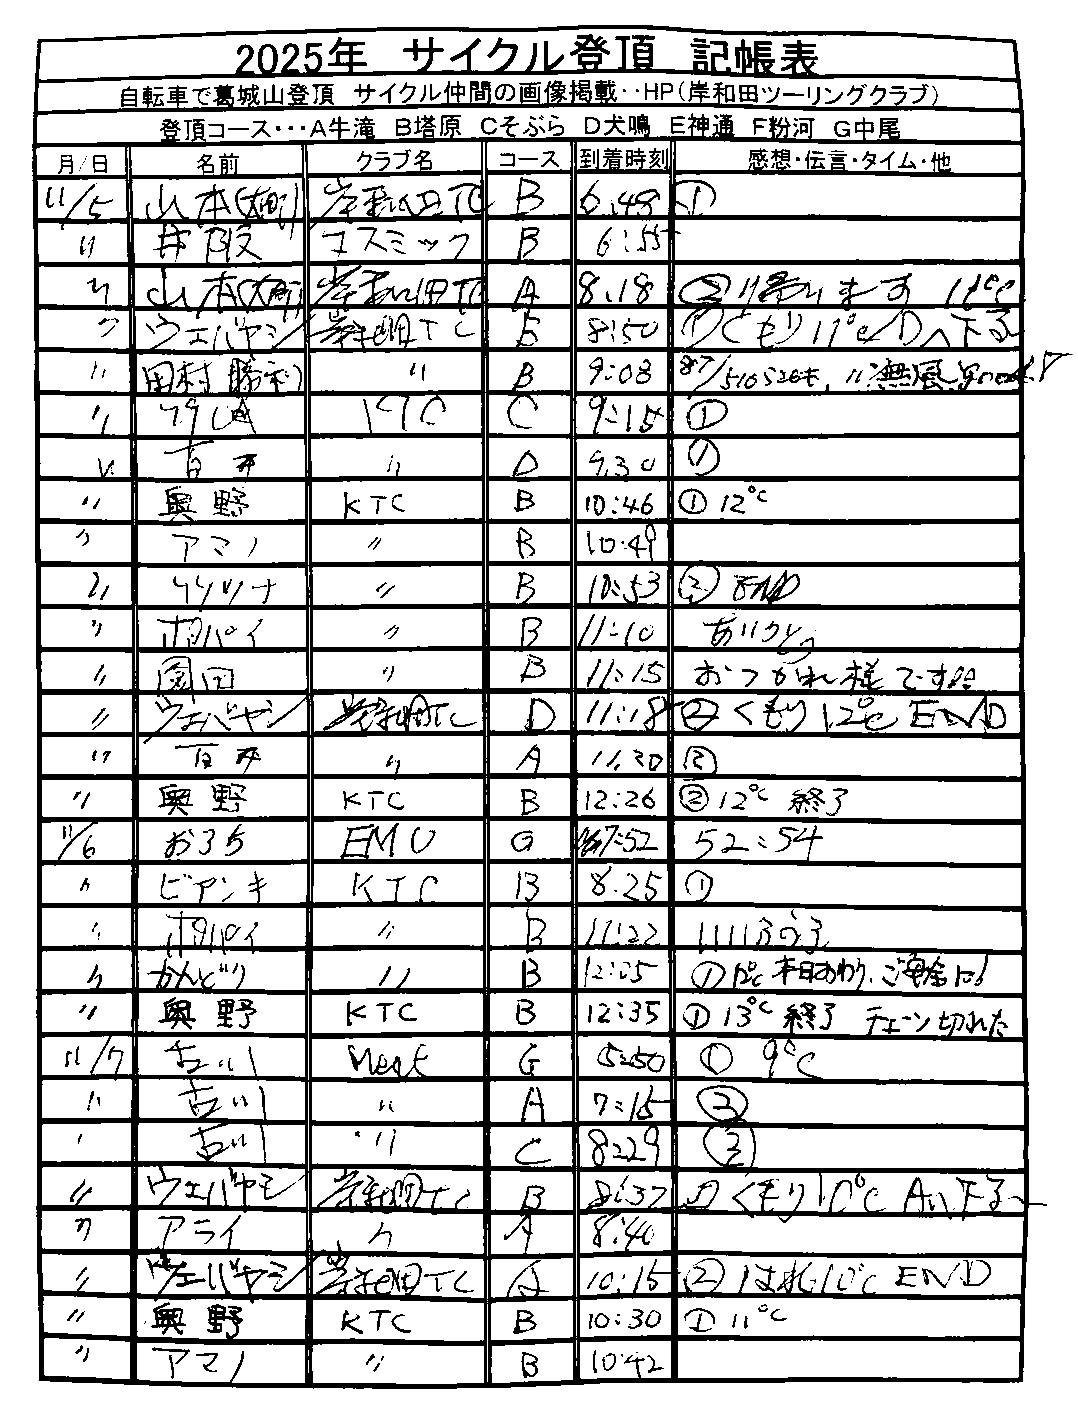 2025年 サイクル登頂 記帳表
自転車で葛城山登頂 サイクル仲間の画像掲載‥HP(岸和田ツーリングクラブ)
登頂コース･･･A牛滝 B塔原 Cそぶら D犬鳴 E神通 F粉河 G中尾
月/日 名前 クラブ名 コース 到着時刻 感想・伝言・タイム・他
11/5 山本 岸和田TC B 6.48 ①
〃 井阪 コスミック B 6:55
〃 山本 岸和田TC A 8.18 ②帰ります 11℃
〃 ウエバヤシ 岸和田TC B 8:50 ①くもり11℃Dへ下る
〃 田村 〃 B 9:08
〃 C 9:15 ①
〃 百井 〃 D 9.30 ①
〃 奥野 KTC B 10:46 ①12℃
〃 アマノ 〃 B 10:49
〃 〃 B 10:53 ② END
〃 ポパイ 〃 B 11:10 ありがとう
〃 園田 〃 B 11:15 おつかれ様です
〃 ウエバヤシ 岸和田TC D 11:18 ②くもり12℃ END
〃 百井 〃 A 11.30 ②
〃 奥野 KTC B 12:26 ②12℃ 終了
11/6 おろち EMU G 7:52 52:54
〃 ビアンキ KTC B 8.25 ①
〃 ポパイ 〃 B 11:22
〃 かんどり 〃 B 12:05 ①12℃ 本日おわり、
〃 奥野 KTC B 12:35 ①13℃ 終了 チェーン切れた
11/7 古川 G 5:50 ① 9℃
〃 古川 〃 A 7:15 ②
〃 古川 〃 C 8:29 ③
〃 ウエバヤシ 岸和田TC B 8:37 ①くもり10℃ Aへ下る
〃 アライ 〃 A 8:40
〃 ウエバヤシ 岸和田TC A 10:15 ②はれ10℃ END
〃 奥野 KTC B 10:30 ①11℃
〃 アマノ 〃 B 10:42